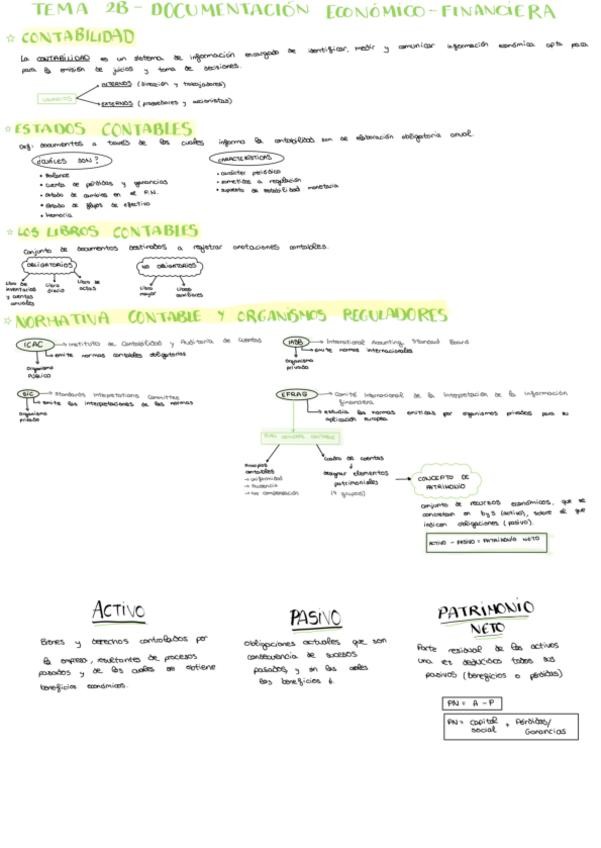 TEMA 2B - DOCUMENTACIÓN ECONÓMICO-FINANCIERA
☆ CONTABILIDAD
La CONTABILIDAD es un sistema de información encargado de identificar, medir y comunicar información económica apta para
para la emisión de juicios y toma de decisiones.
INTERNOS (dirección y trabajadores)
USUARIOS
EXTERNOS (proveedores y accionistas)
☆ ESTADOS CONTABLES
Def: documentos a través de los cuales informa la contabilidad son de elaboración obligatoria anual.
¿CUÁLES SON? CARACTERÍSTICAS
• Balance • carácter periódico
• cuenta de pérdidas y ganancias • sometidos a regulación
• estado de cambios en el P.N. • supuesto de estabilidad monetaria
• estado de flujos de efectivo
• Memoria
☆ LOS LIBROS CONTABLES
Conjunto de documentos destinados a registrar anotaciones contables.
OBLIGATORIOS NO OBLIGATORIOS
Libro de inventarios y cuentas anuales
Libro diario
Libro de actas
Libro mayor
Libros auxiliares
☆ NORMATIVA CONTABLE Y ORGANISMOS REGULADORES
ICAC → Instituto de Contabilidad y Auditoría de Cuentas
→ emite normas contables obligatorias
Organismo PÚBLICO
IASB → International Accounting Standard Board
→ emite normas internacionales
Organismo privado
SIC → Standards Interpretations Committee
→ emite las interpretaciones de las normas
Organismo privado
EFRAG → Comité Internacional de la Interpretación de la Información
Financiera
→ estudia las normas emitidas por organismos privados para su
aplicación europea
PLAN GENERAL CONTABLE
Principios contables
→ uniformidad
→ prudencia
→ no compensación
Cuadro de cuentas
designar elementos
patrimoniales
(9 grupos)
CONCEPTO DE
PATRIMONIO
conjunto de recursos económicos, que se
concretan en b y S (activo), sobre el que
indican obligaciones (pasivo).
ACTIVO - PASIVO = PATRIMONIO NETO
ACTIVO
Bienes y derechos controlados por
la empresa, resultantes de procesos
pasados y de los cuales se obtiene
beneficios económicos.
PASIVO
Obligaciones actuales que son
consecuencia de sucesos
pasados y en los cuales
los beneficios ↓.
PATRIMONIO
NETO
Parte residual de los activos
una vez deducidos todos sus
pasivos (beneficios o pérdidas)
PN = A - P
PN = Capital social + Pérdidas/Ganancias